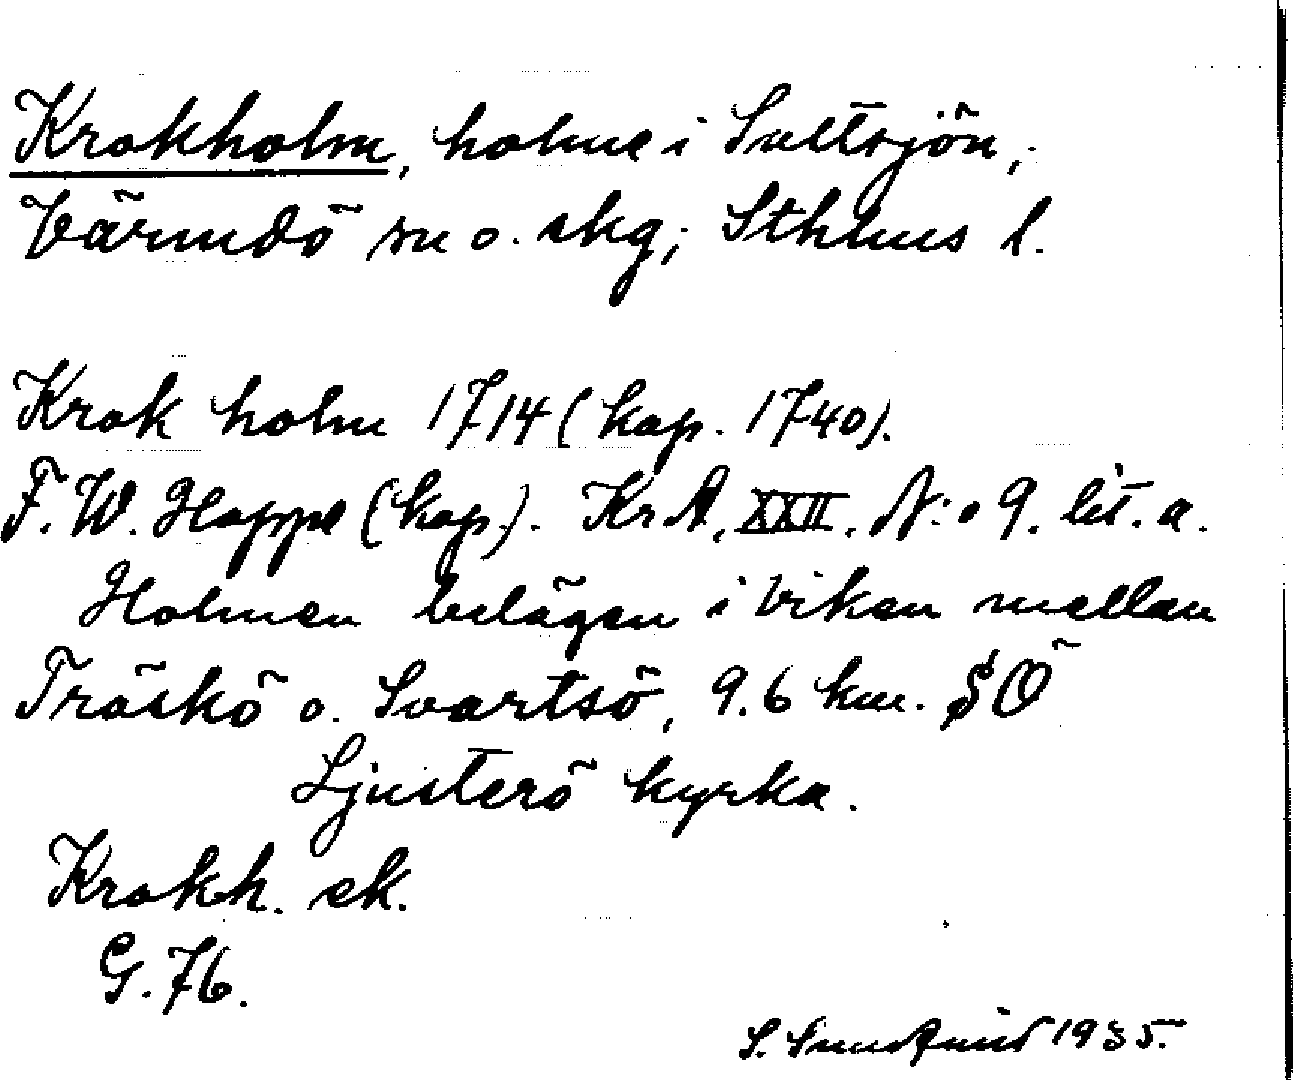 Krokholm, holme i Saltsjön,
Värmdö sn o. skg; Sthlms l.
Krok holm 1714 (kop. 1740).
F. W. Hoppe (kop.). Kr A, XXII. N:o 9. lit. a.
Holmen belägen i viken mellan
Träskö o. Svartsö, 9.6 km. SÖ
Ljusterö kyrka.
Krokh. ek.
G. 76.
S. 1935.